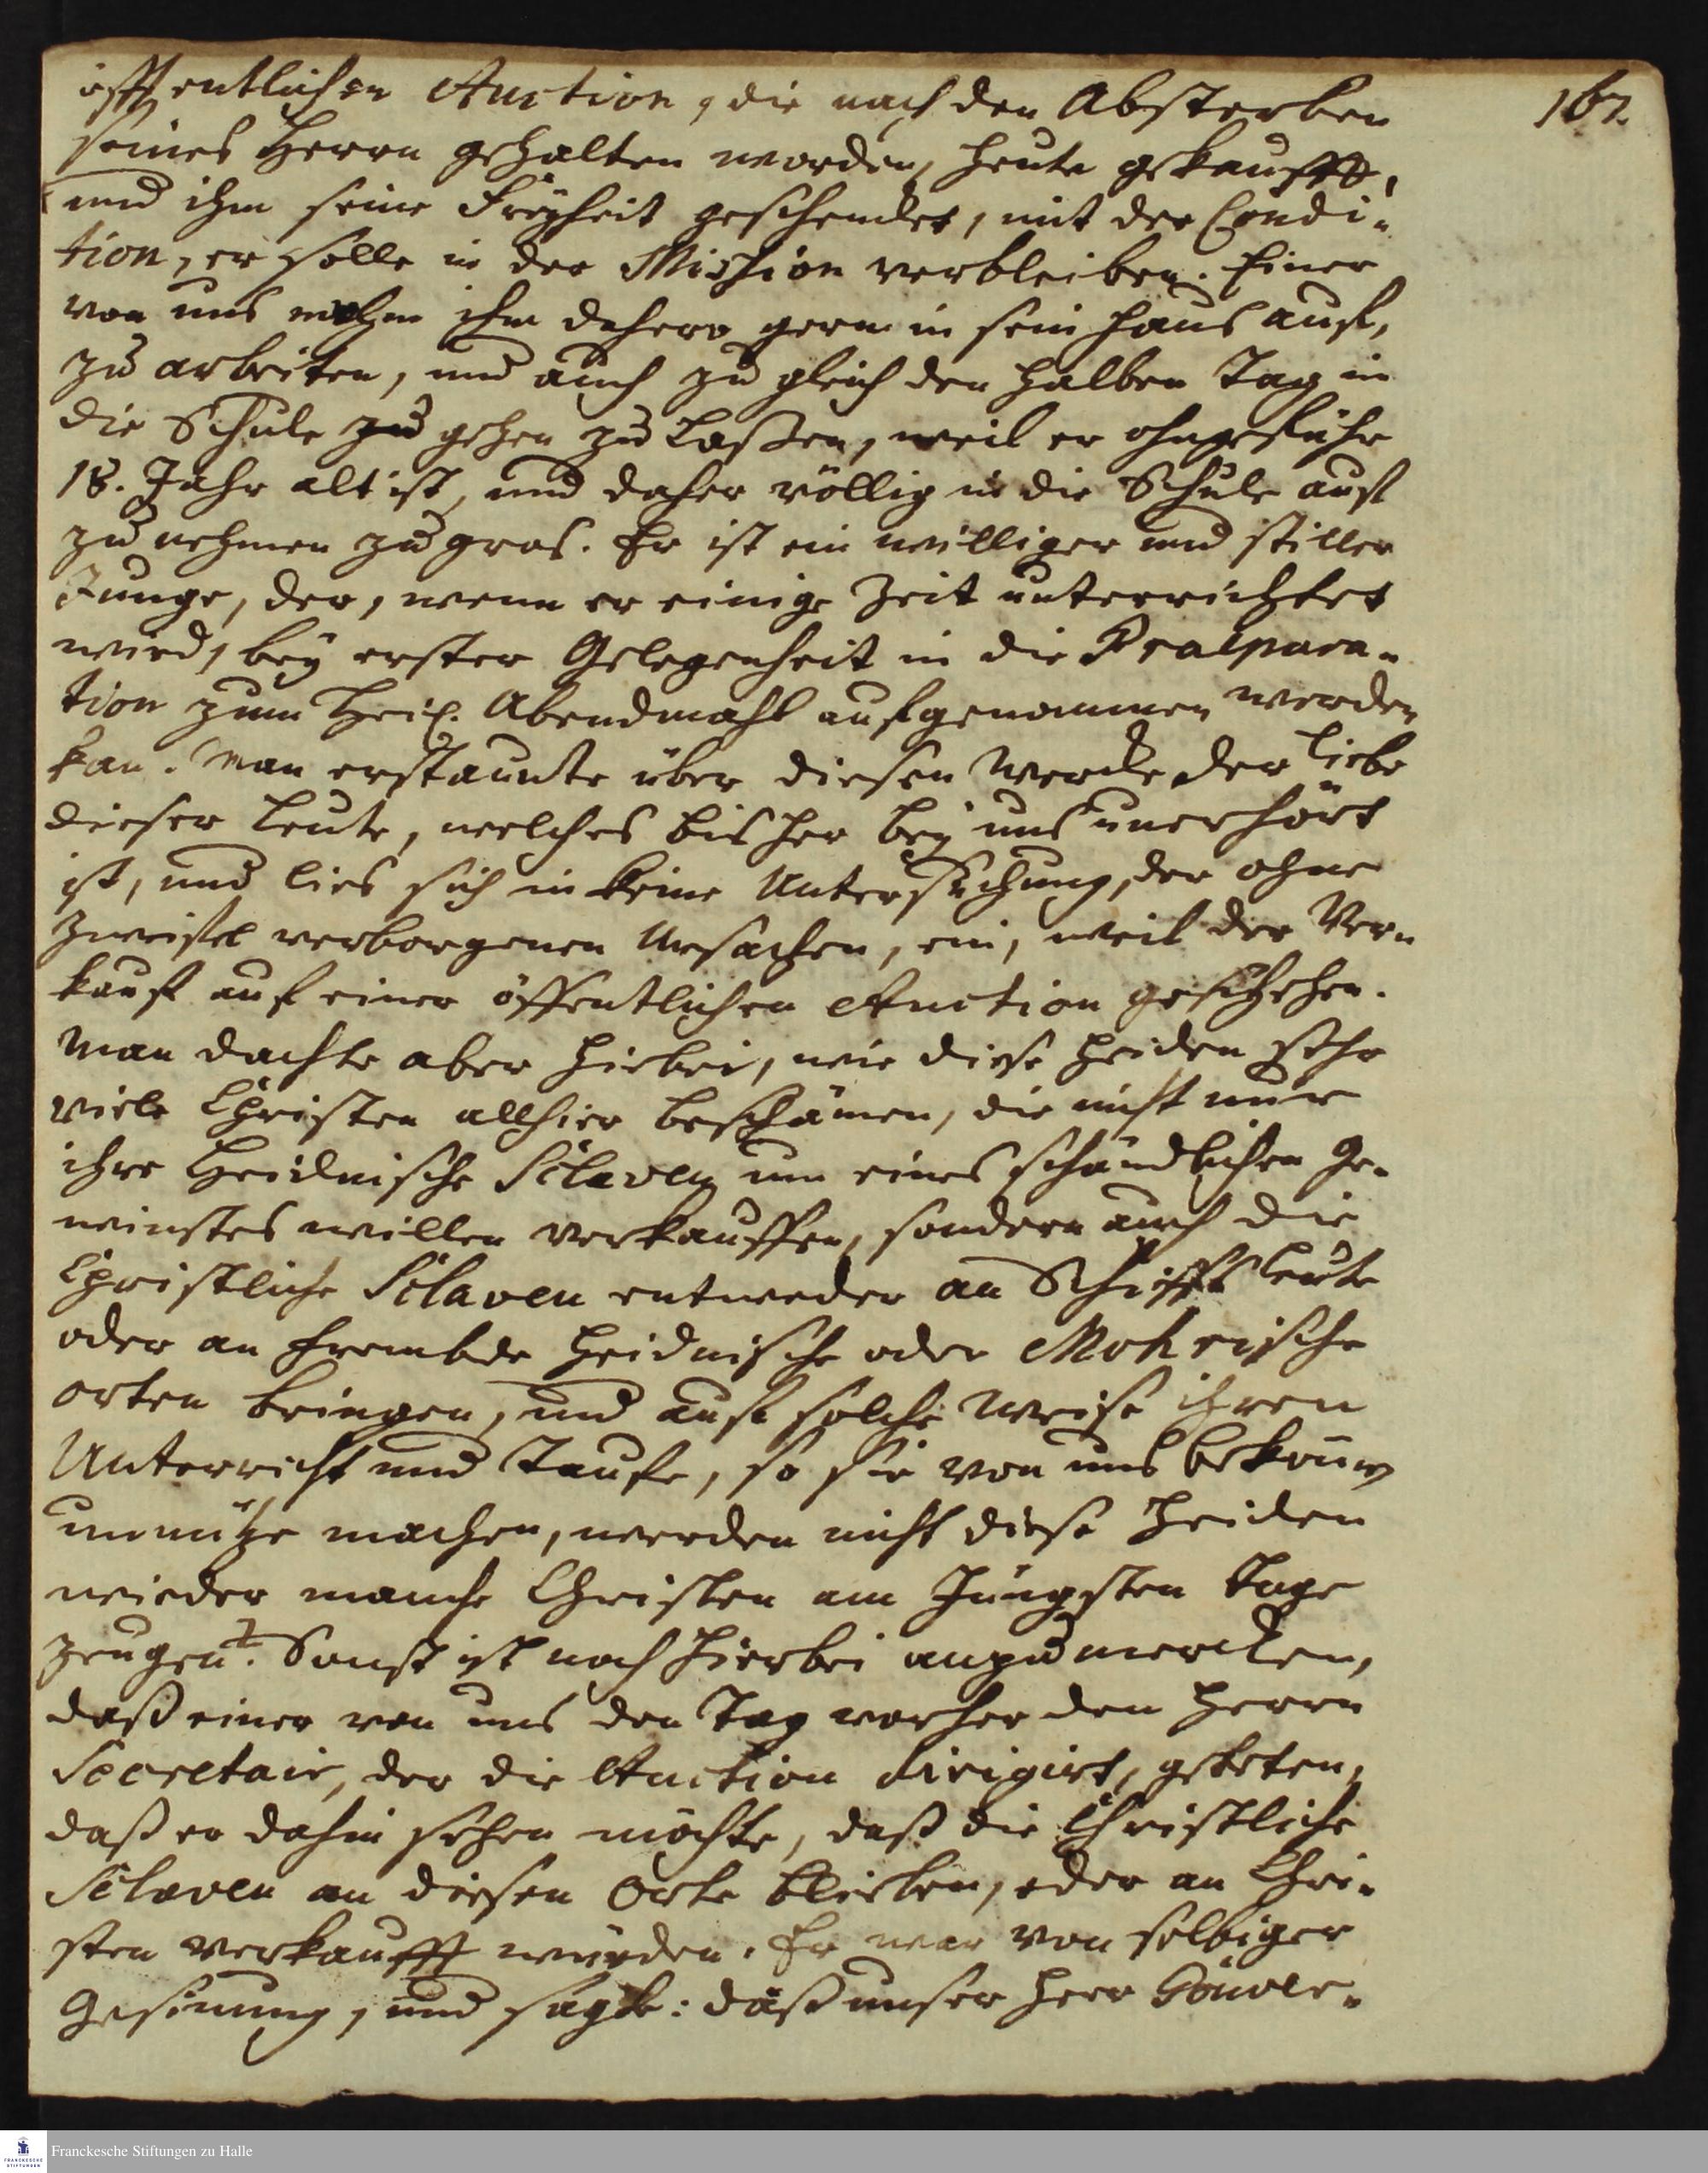 167.
öffentlichen Auction, die nach den Absterben
seines Herrn gehalten worden, heute gekaufft,
und ihm seine Freyheit geschencket, mit der Condi-
tion, er solle in der Mission verbleiben. Einer
von uns nahm ihn dahero gern in sein Haus auf,
zu arbeiten, und auch zu gleich den halben Tag in
die Schule zu gehen zu laßen, weil er ohngefähr
18. Jahr alt ist, und daher völlig in die Schule auf
zu nehmen zu gros. Er ist ein williger und stiller
Junge, der, wenn er einige Zeit unterrichtet
wird, bey erster Gelegenheit in die Praepara-
tion zum Heil. Abendmahl aufgenommen werden
kan. Man erstaunte über diesen Wercke der Liebe
dieser Leute, welches bisher bey uns unerhört
ist, und lies sich in keine Untersuchung, der ohne
Zweifel verborgenen Ursachen, ein, weil der Ver-
kauf auf einer öffentlichen Auction geschehen.
Man dachte aber hiebei, wie diese Heiden sehr
viele Christen allhier beschämen, die nicht nur
ihre Heidnische Sclaven um eines schändlichen Ge-
winstes willen verkauffen, sondern auch die
Christliche Sclaven entweder an Schiffs Leute
oder an frembde Heidnische oder Mohrische
Orten bringen, und auf solche Weise ihren
Unterricht und Taufe, so sie von uns bekom̅en
unnütze machen, werden nicht diese Heiden
wieder manche Christen am Jüngsten Tage
zeugen? Sonst ist noch hierbei anzumercken,
daß einer von uns den Tag vorher den Herrn
Secretair, der die Auction dirigirt, gebeten,
daß er dahin sehen möchte, daß die Christliche
Sclaven an diesen Orte blieben, oder an Chri-
sten verkaufft würden. Er war von selbiger
Gesinnung, und sagte: daß unser Herr Gouver-
Franckesche Stiftungen zu Halle
FRANCKESCHE
STIFTUNGEN